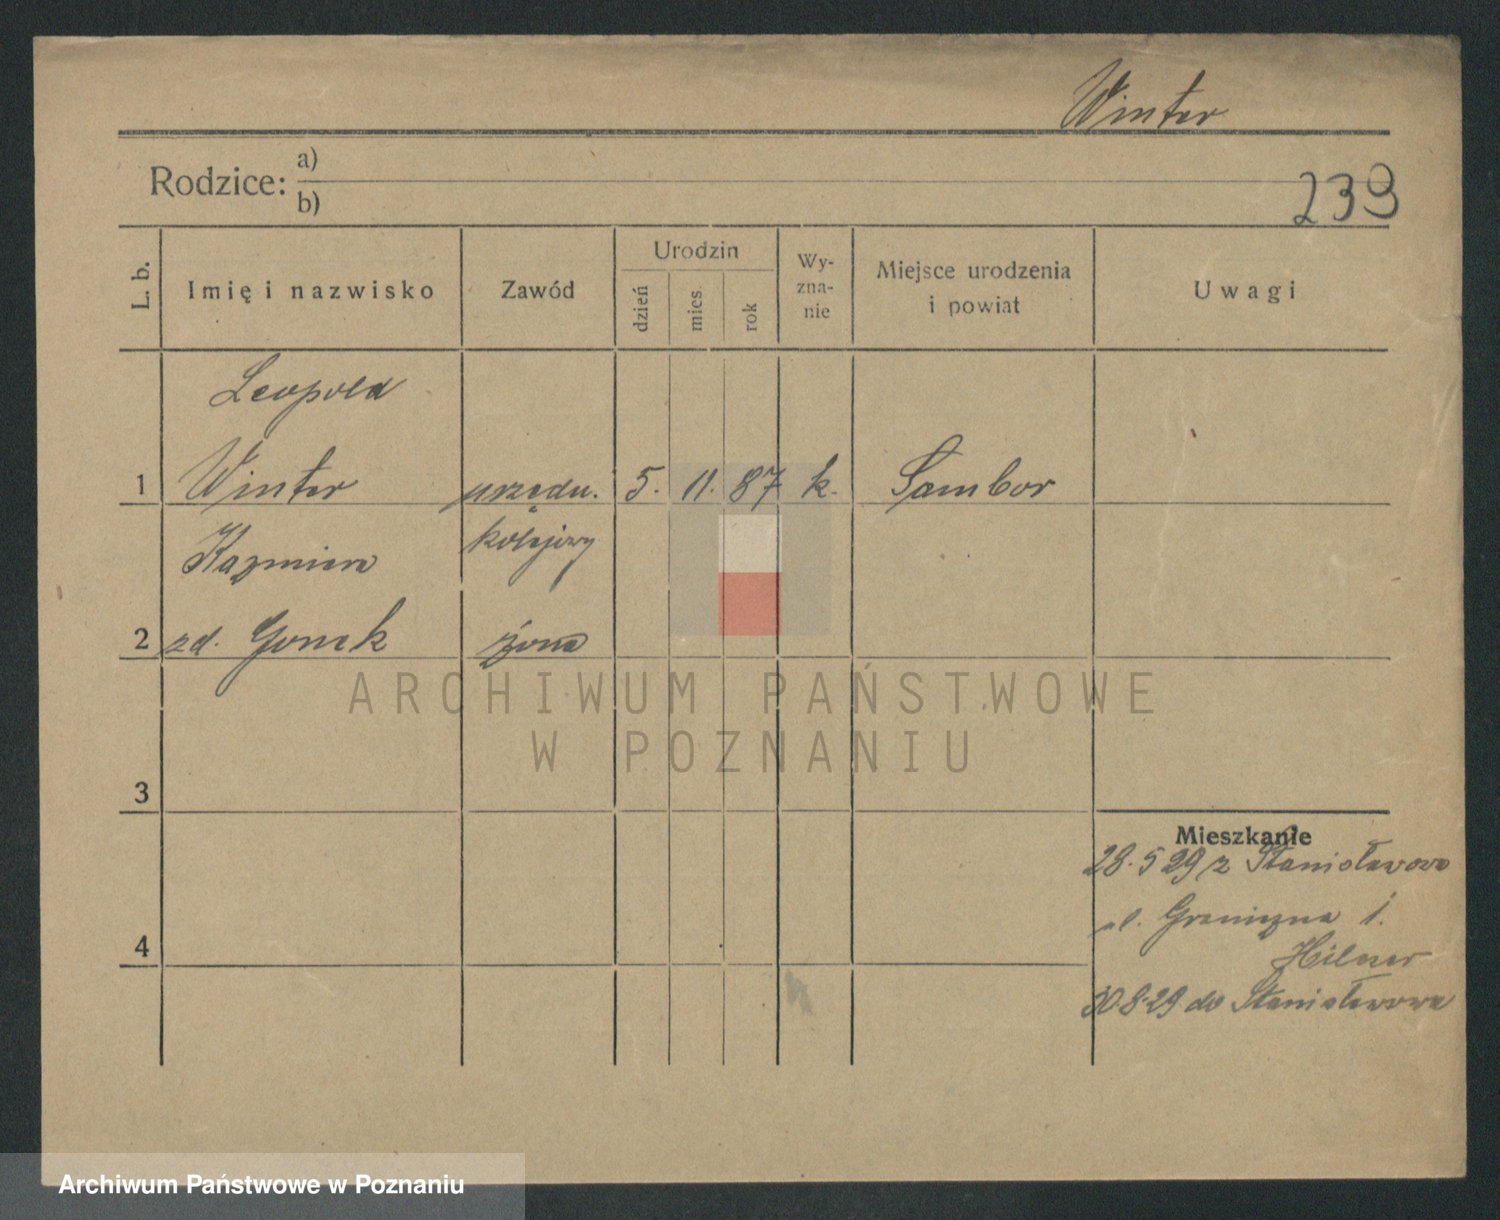 Winter
Rodzice:
a)
b)
239
L. b.
Imię i nazwisko
Zawód
Urodzin
dzień
mies.
rok
Wy-
zna-
nie
Miejsce urodzenia
i powiat
Uwagi
Leopold
1 Winter urzędn. 5. 11. 87 k. Sambor
Kazmiera kolejowy
2 zd. Gonek żona
ARCHIWUM PAŃSTWOWE
W POZNANIU
3
Mieszkanie
28.5 29 z Stanisławowa
ul. Graniczna 1.
4
Hilner
30.8.29 do Stanisławowa
Archiwum Państwowe w Poznaniu